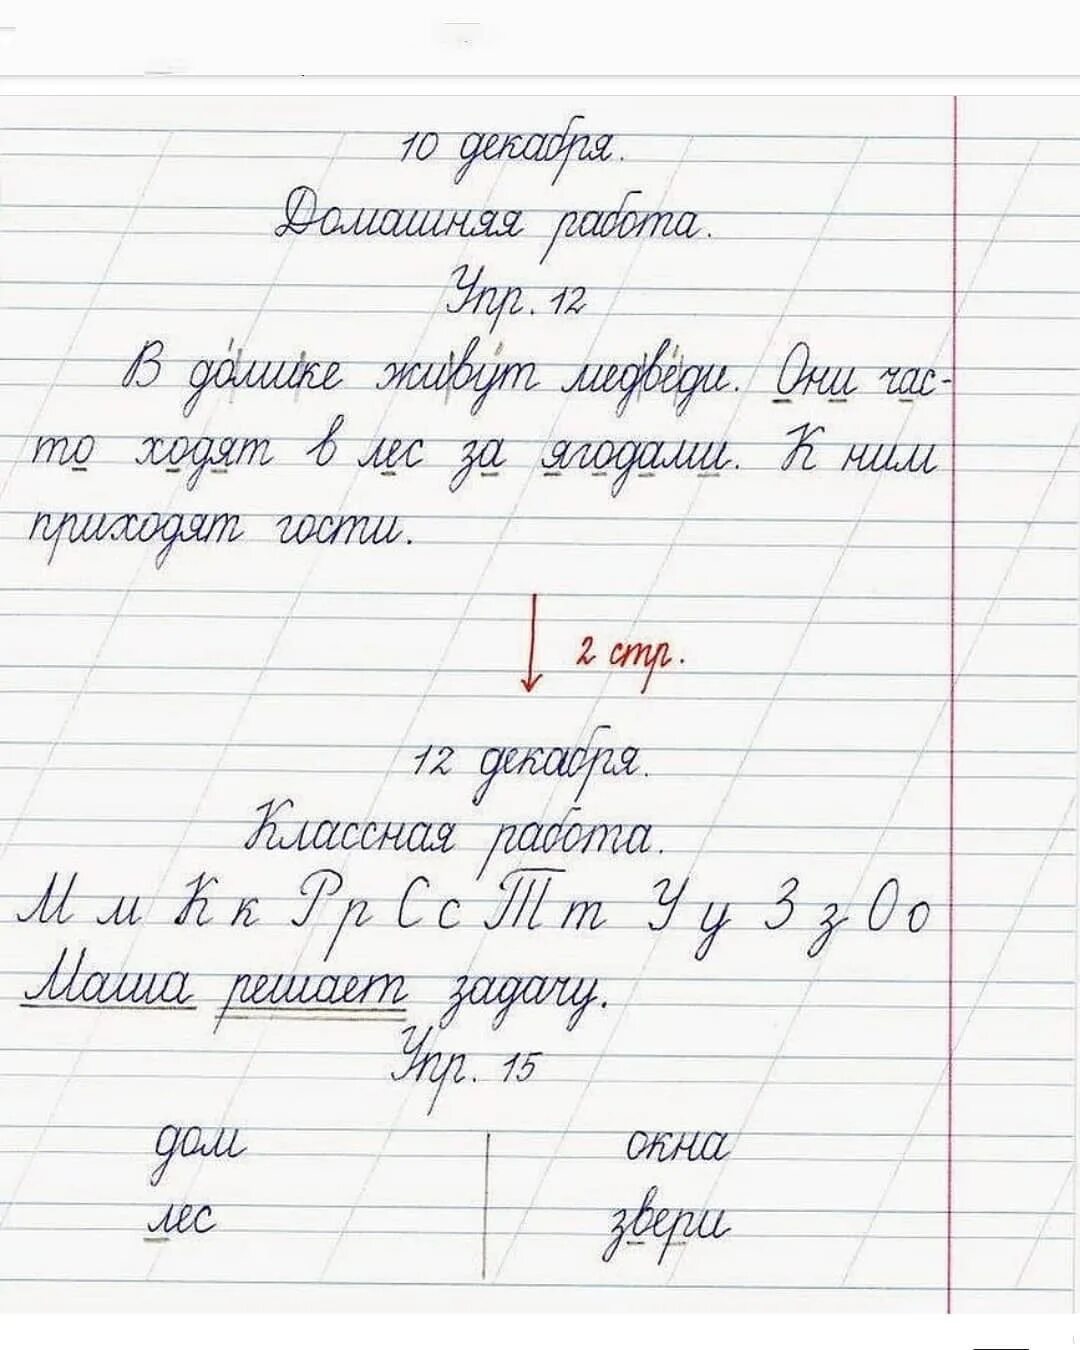 10 декабря.
Домашняя работа.
Упр. 12
В до́мике живу́т медве́ди. Они час-
то ходят в лес за ягодами. К ним
приходят гости.
2 стр.
12 декабря.
Классная работа.
М м К к Р р С с Т т У у З з О о
Маша решает задачу.
Упр. 15
дом окна
лес звери